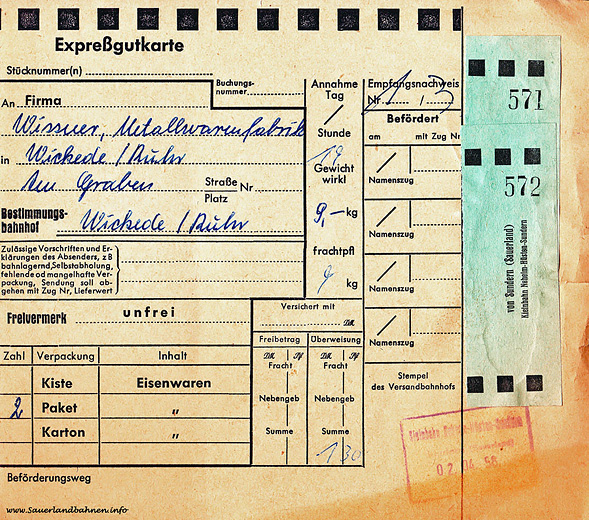 Expreßgutkarte
Stücknummer(n)
Buchungs-
nummer
Annahme
Tag
Empfangsnachweis
Nr. 1 / 3
An Firma
Wissner, Metallwarenfabrik
in Wickede / Ruhr
Am Graben
Straße Nr
Platz
Bestimmungs-
bahnhof Wickede / Ruhr
Stunde
17
Gewicht
wirkl
9,- kg
frachtpfl
9 kg
Befördert
am mit Zug Nr
Namenszug
Namenszug
Namenszug
Namenszug
Stempel
des Versandbahnhofs
Zulässige Vorschriften und Er-
klärungen des Absenders, z B
bahnlagernd, Selbstabholung,
fehlende od mangelhafte Ver-
packung, Sendung soll ab-
gehen mit Zug Nr, Lieferwert
Freivermerk unfrei
Versichert mit
DM
Freibetrag Überweisung
DM Pf DM Pf
Fracht Fracht
Nebengeb Nebengeb
Summe Summe
1 30
Zahl Verpackung Inhalt
Kiste Eisenwaren
2 Paket "
Karton "
Beförderungsweg
571
572
von Sundern (Sauerland)
Kleinbahn Neheim-Hüsten-Sundern
Kleinbahn Neheim-Hüsten-Sundern
02.04.58
www.Sauerlandbahnen.info